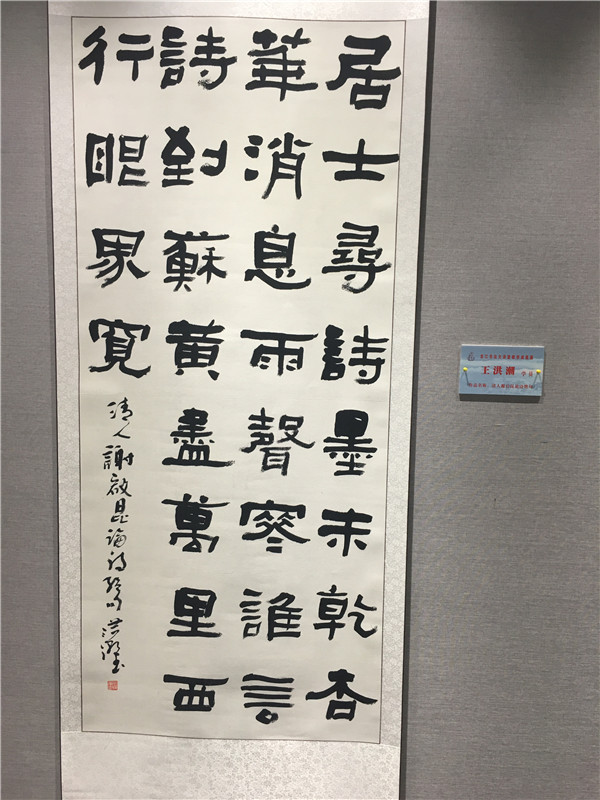 居士尋詩墨未乾杏
華消息雨聲寒誰言
詩到蘇黄盡萬里西
行眼界寬
清人謝啟昆論詩絶句 洪潮
王洪潮 学员